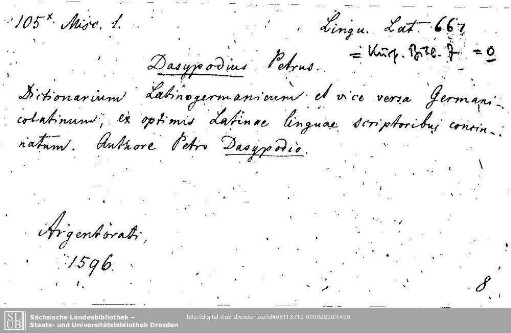 105ˣ Misc. 1.
Lingu. Lat. 667
= Kürf. Bibl. = 0
Dasypodius Petrus.
Dictionarium Latinogermanicum et vice versa Germani-
colatinum, ex optimis Latinae linguae scriptoribus concin-
natum. Authore Petro Dasypodio.
Argentorati,
1596.
8.
Sächsische Landesbibliothek –
Staats- und Universitätsbibliothek Dresden